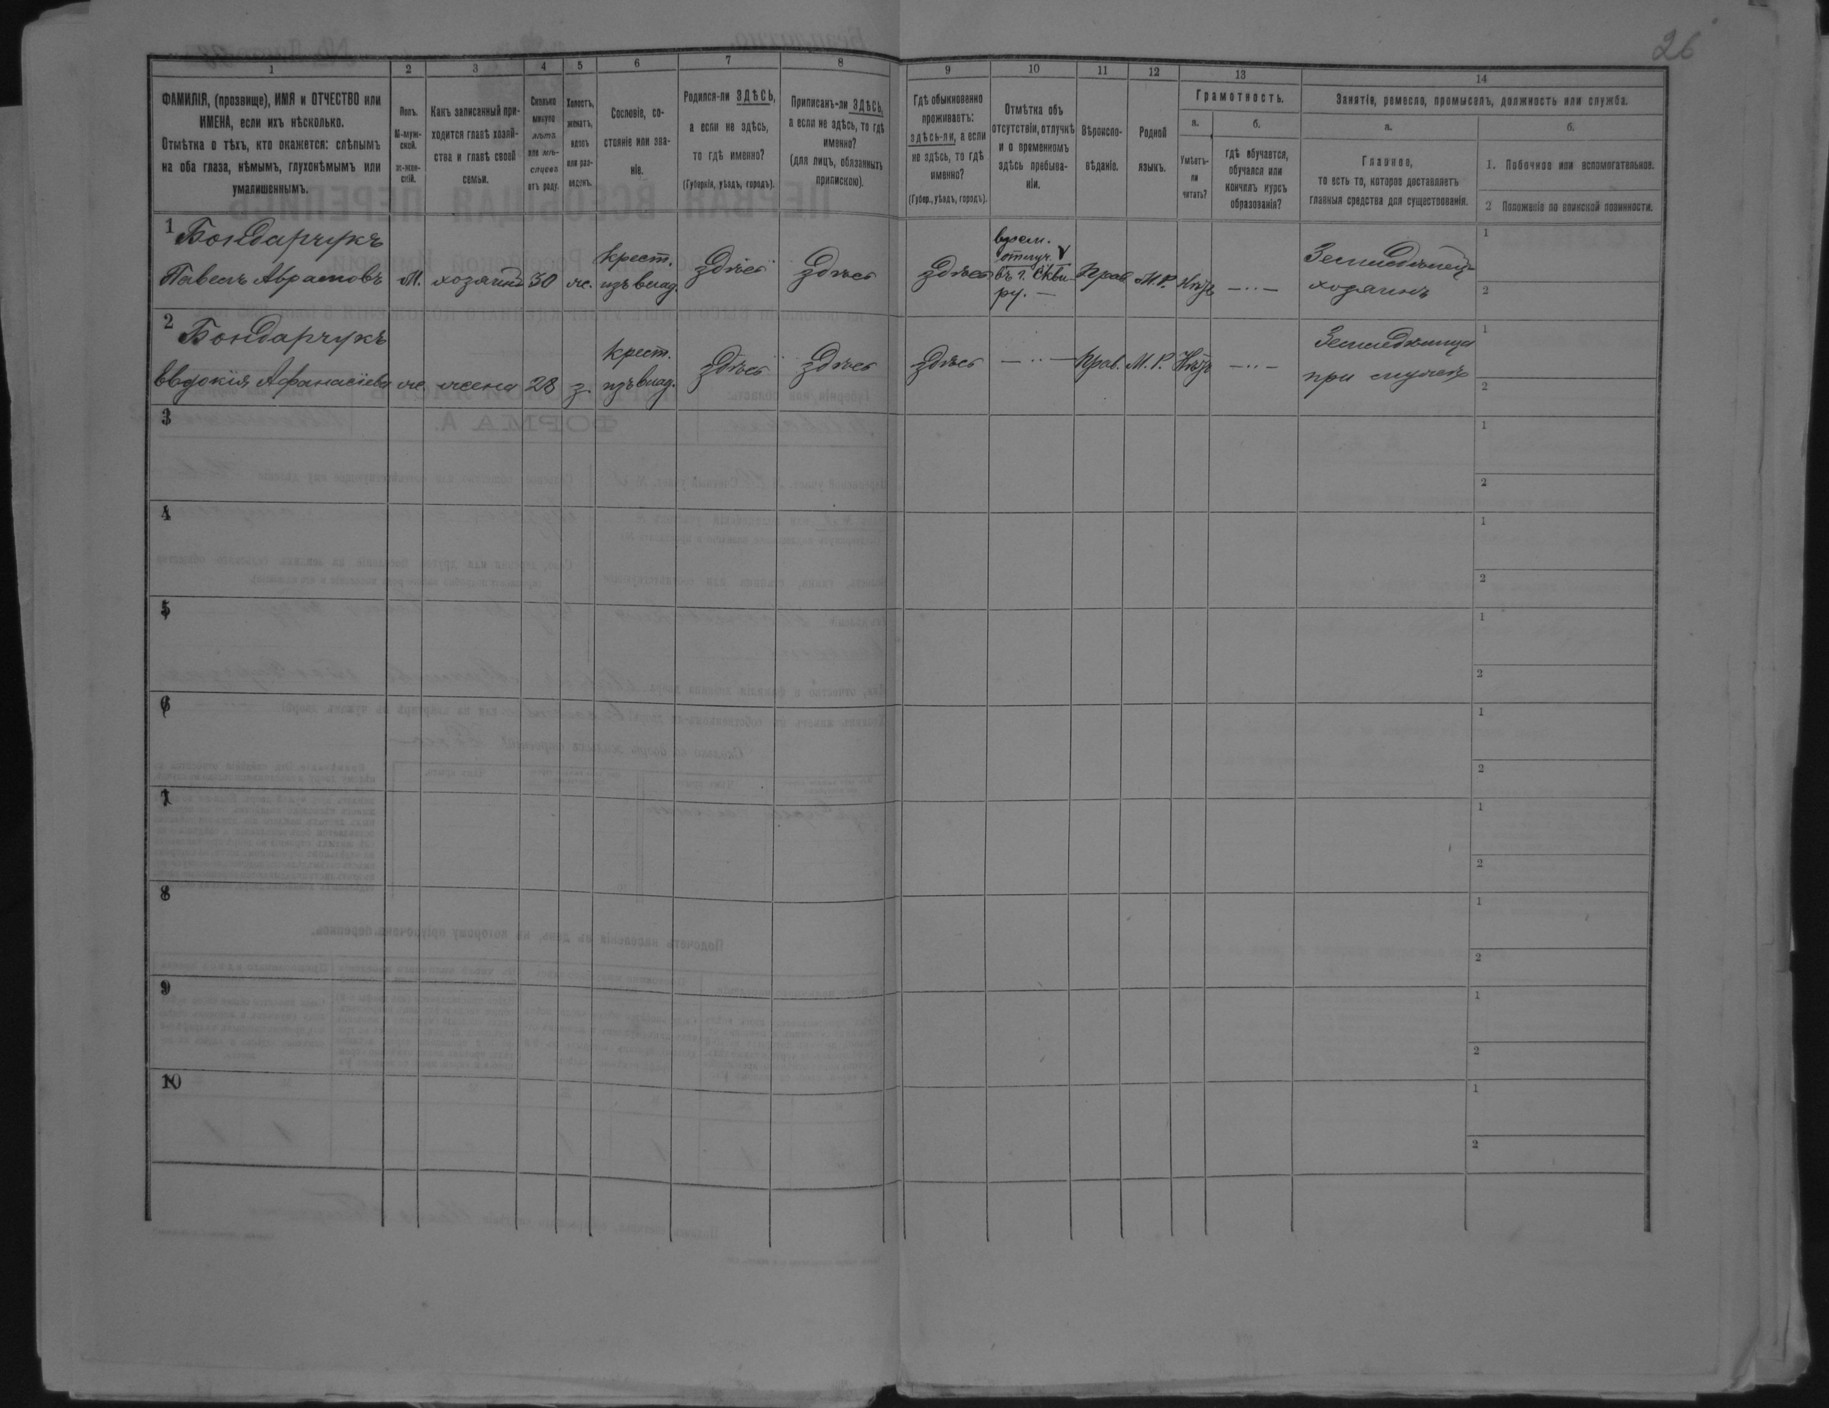 26
1
2
3
4
5
6
7
8
9
10
11
12
13
14
ФАМИЛІЯ, (прозвище), ИМЯ и ОТЧЕСТВО или
ИМЕНА, если ихъ нѣсколько.
Отмѣтка о тѣхъ, кто окажется: слѣпымъ
на оба глаза, нѣмымъ, глухонѣмымъ или
умалишеннымъ.
Полъ.
М-муж-
ской.
Ж-жен-
скій.
Какъ записанный при-
ходится главѣ хозяй-
ства и главѣ своей
семьи.
Сколько
минуло
лѣтъ
или мѣ-
сяцевъ
отъ роду.
Холостъ,
женатъ,
вдовъ
или раз-
веденъ.
Сословіе, со-
стояніе или зва-
ніе.
Родился-ли ЗДѢСЬ,
а если не здѣсь,
то гдѣ именно?
(Губернія, уѣздъ, городъ).
Приписанъ-ли ЗДѢСЬ,
а если не здѣсь, то гдѣ
именно?
(для лицъ, обязанныхъ
припискою).
Гдѣ обыкновенно
проживаетъ:
здѣсь-ли, а если
не здѣсь, то гдѣ
именно?
(Губер., уѣздъ, городъ).
Отмѣтка объ
отсутствіи, отлучкѣ
и о временномъ
здѣсь пребыва-
ніи.
Вѣроиспо-
вѣданіе.
Родной
языкъ.
Грамотность.
а.
б.
Умѣетъ-
ли
читать?
гдѣ обучается,
обучался или
кончилъ курсъ
образованія?
Занятіе, ремесло, промыселъ, должность или служба.
а.
б.
Главное,
то есть то, которое доставляетъ
главныя средства для существованія.
1. Побочное или вспомогательное.
2 Положеніе по воинской повинности.
1 Бондарчукъ
Павелъ Абрамовъ М. хозяинъ 30 ж. крест. изъ влад. здѣсь здѣсь здѣсь врем. отлуч. въ г. Скви-ру. — Прав. М.Р. Нѣтъ — Земледѣлецъ-хозяинъ
1
2
2 Бондарчукъ
Евдокія Афанасіева ж. жена 28 з. крест. изъ влад. здѣсь здѣсь здѣсь — Прав. М.Р. Нѣтъ — Земледѣлица при мужѣ
1
2
3
1
2
4
1
2
5
1
2
6
1
2
7
1
2
8
1
2
9
1
2
10
1
2